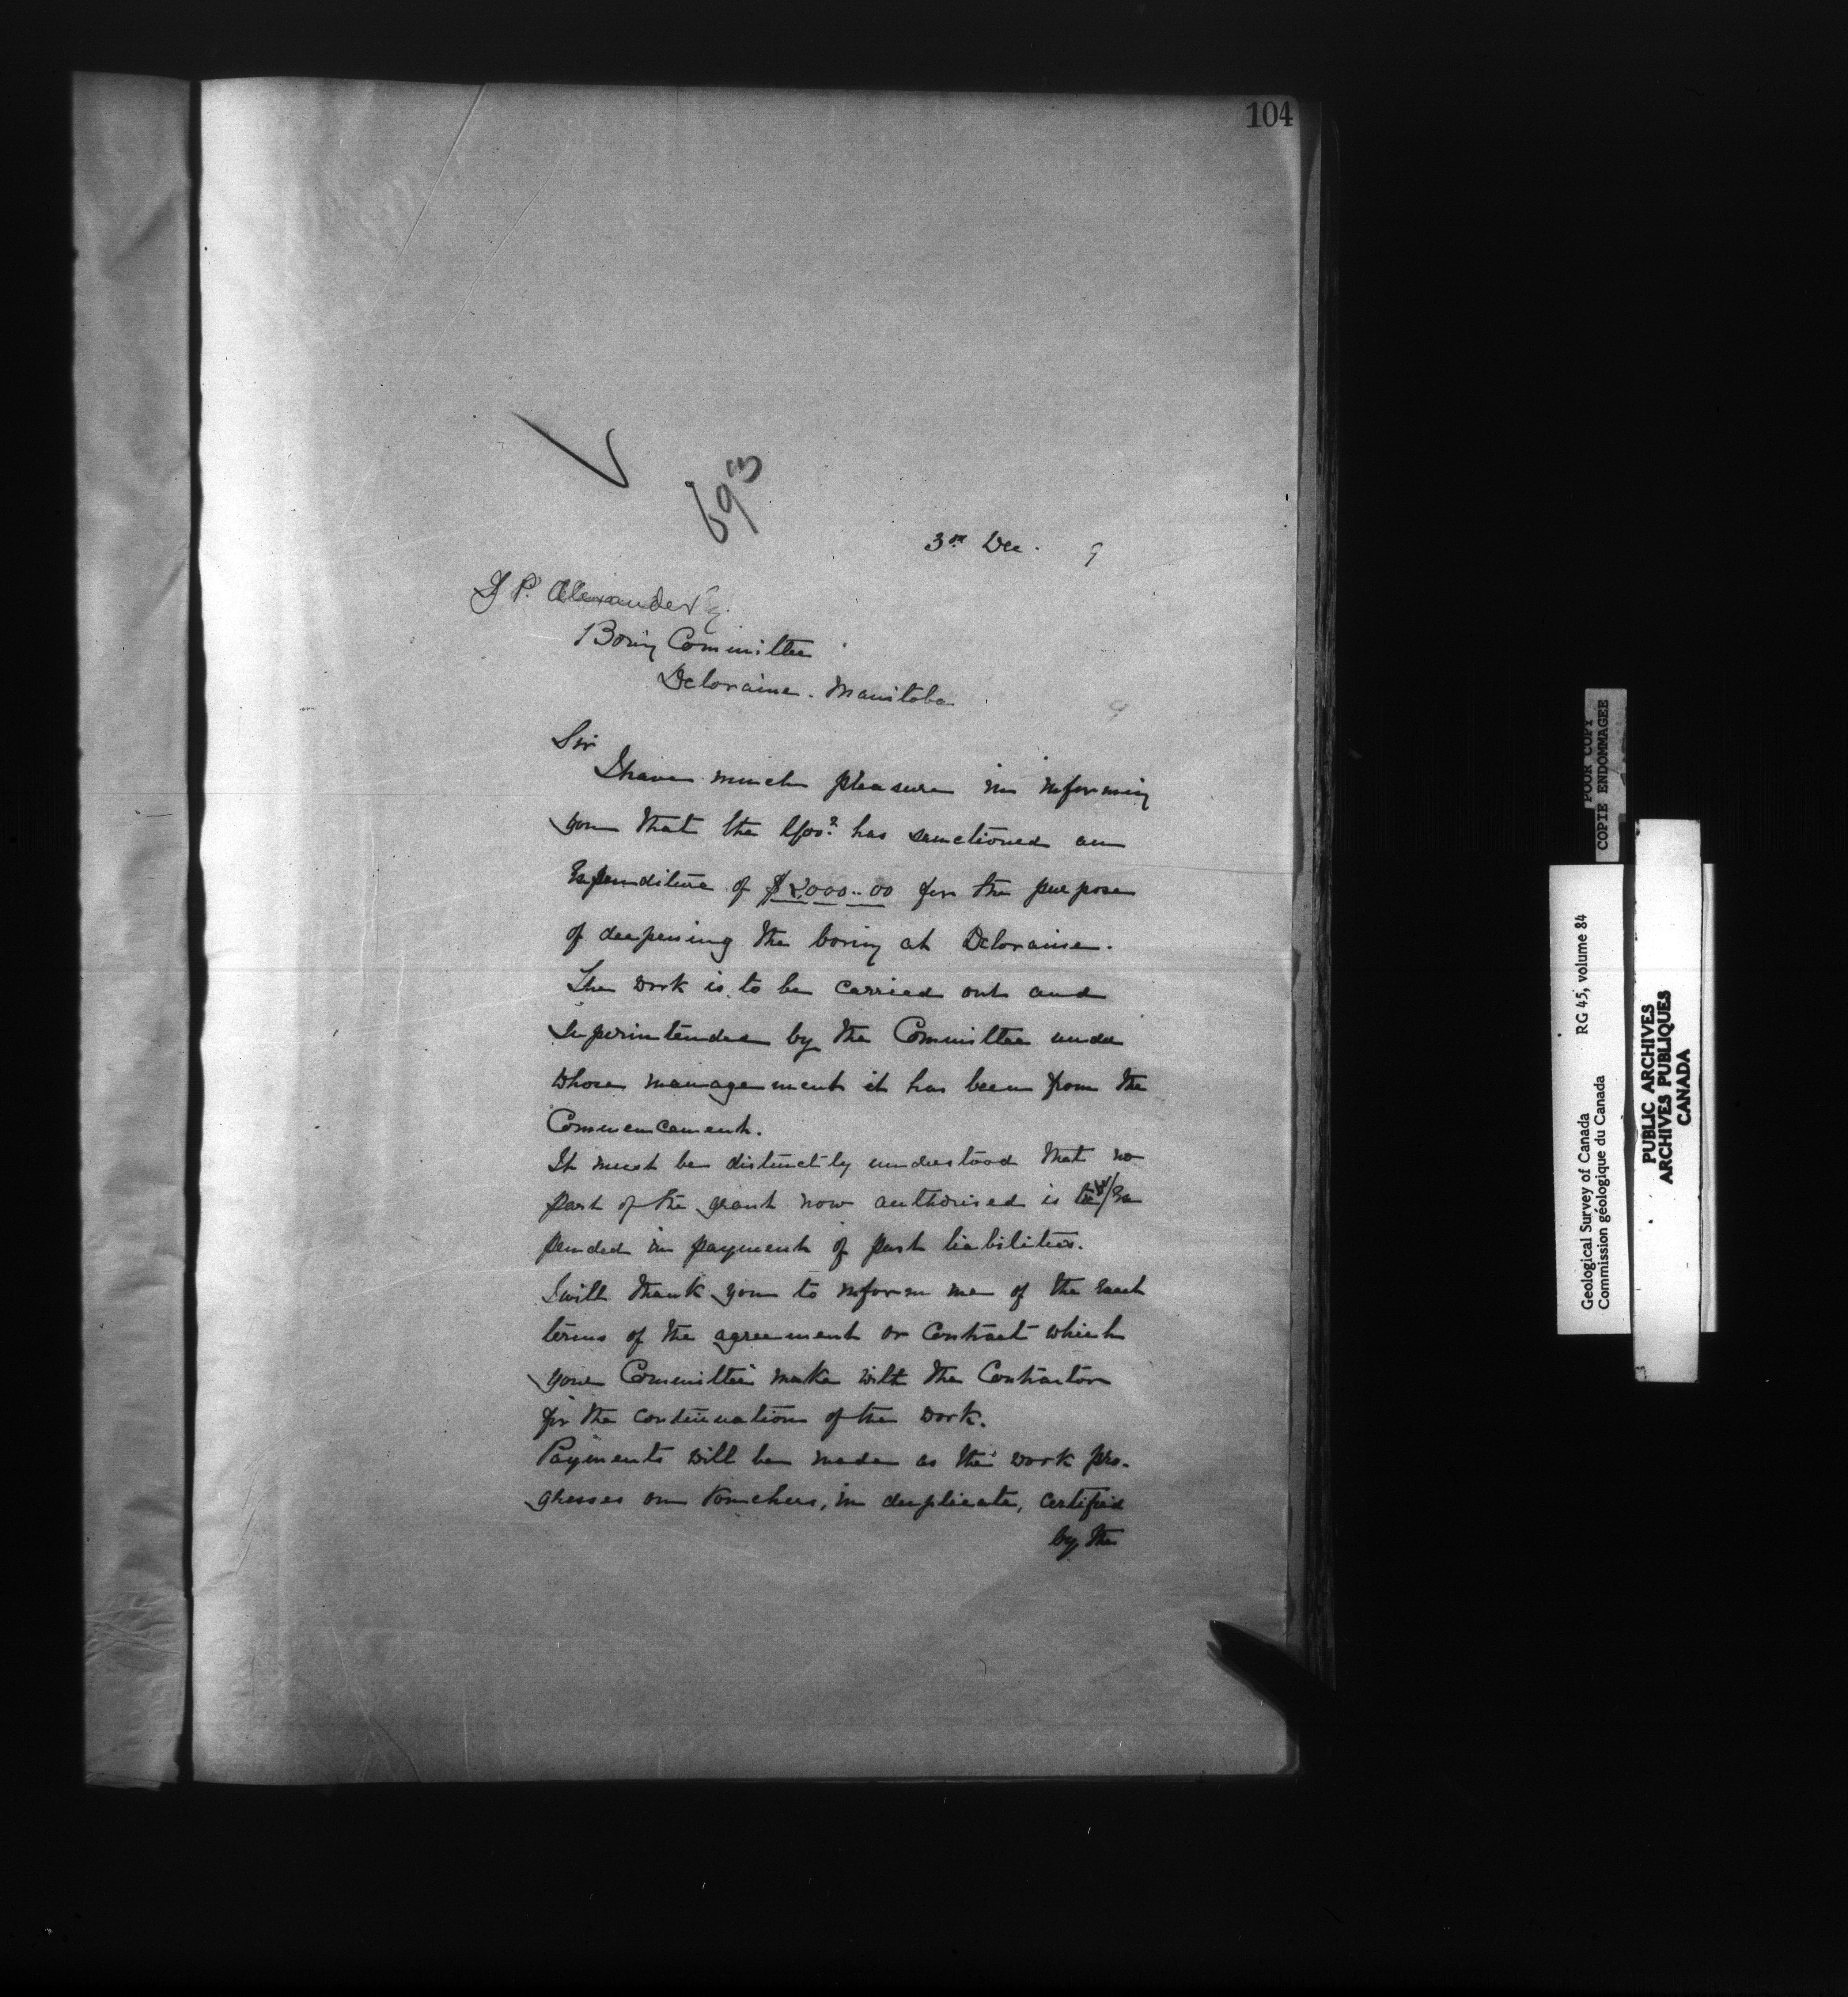 104
693
3rd Dec. 9
J P. Alexander Esq.
Boring Committee
Deloraine. Manitoba
Sir
I have much pleasure in informing
you that the Govt. has sanctioned an
Expenditure of $2000..00 for the purpose
of deepening the boring at Deloraine.
The work is to be carried out and
Superintended by the Committee under
whose management it has been from the
Commencement.
It must be distinctly understood that no
part of the grant now authorised is to be Ex
pended in payment of past liabilities.
I will thank you to inform me of the exact
terms of the agreement or Contract which
your Committee make with the Contractor
for the continuation of the work.
Payments will be made as the work pro-
gresses on Vouchers, in duplicate, certified
by the
POOR COPY
COPIE ENDOMMAGEE
Geological Survey of Canada RG 45, volume 84
Commission géologique du Canada
PUBLIC ARCHIVES
ARCHIVES PUBLIQUES
CANADA
3